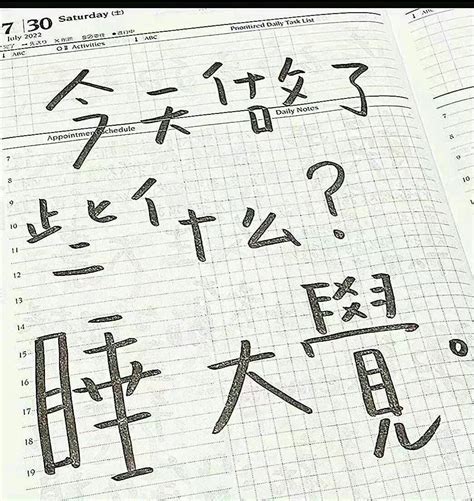 7 | 30 Saturday (土)
July 2022
Prioritized Daily Task List
Activities
↓ ABC
↓ ABC
今天做了
Appointment Schedule
Daily Notes
些什么?
睡大覺。
7
8
9
10
11
12
13
14
15
16
17
18
19
7
8
9
10